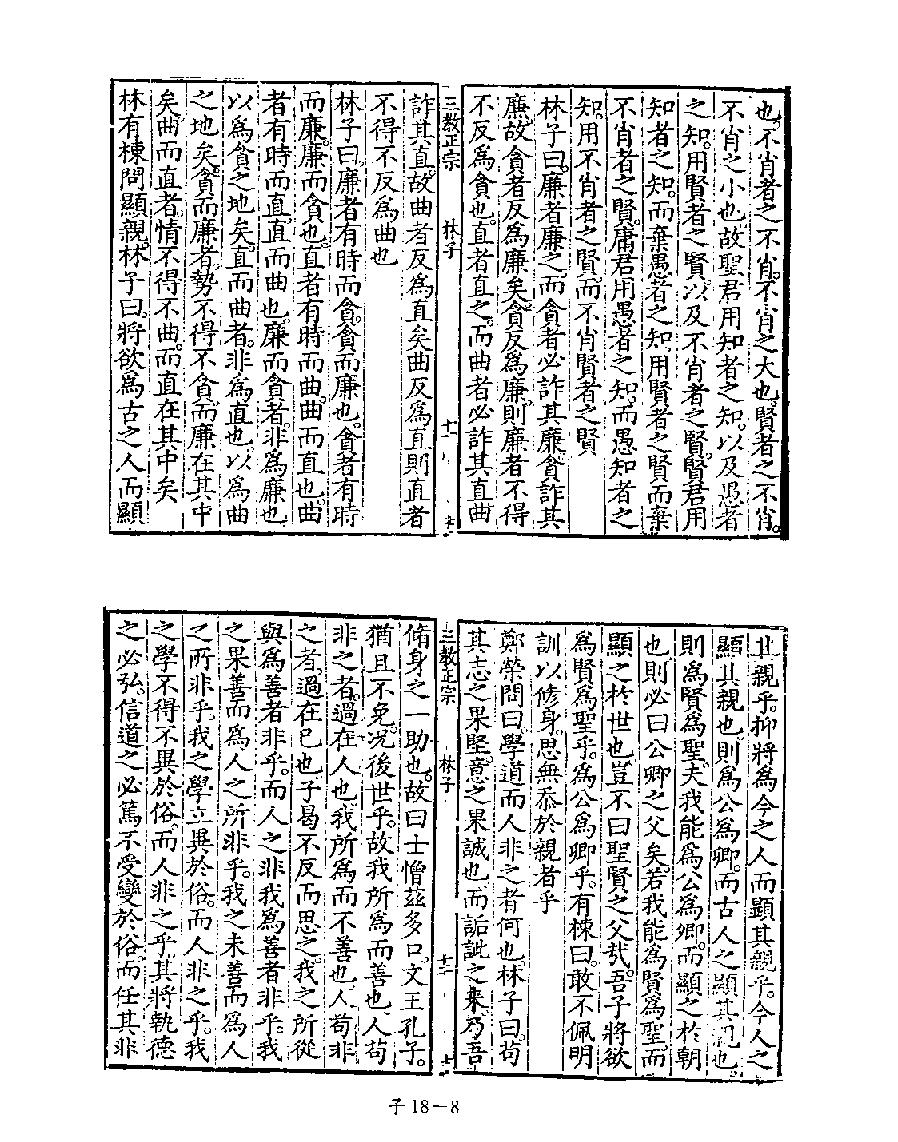 也不肖者之不肖不肖之大也賢者之不肖
不肖之小也故聖君用知者之知以及愚者
之知用賢者之賢以及不肖者之賢賢君用
知者之知而棄愚者之知用賢者之賢而棄
不肖者之賢庸君用愚者之知而愚知者之
知用不肖者之賢而不肖賢者之賢
林子曰廉者廉之而貪者必詐其廉貪詐其
廉故貪者反為廉矣貪反為廉則廉者不得
不反為貪也直者直之而曲者必詐其直曲
三教正宗 林子 十一
詐其直故曲者反為直矣曲反為直則直者
不得不反為曲也
林子曰廉者有時而貪貪而廉也貪者有時
而廉廉而貪也直者有時而曲曲而直也曲
者有時而直直而曲也廉而貪者非為廉也
以為貪之地矣直而曲者非為直也以為曲
之地矣貪而廉者勢不得不貪而廉在其中
矣曲而直者情不得不曲而直在其中矣
林有棟問顯親林子曰將欲為古之人而顯
其親乎抑將為今之人而顯其親乎今人之
顯其親也則為公為卿而古人之顯其親也
則為賢為聖夫我能為公為卿而顯之於朝
也則必曰公卿之父矣若我能為賢為聖而
顯之於世也豈不曰聖賢之父哉吾子將欲
為賢為聖乎為公為卿乎有棟曰敢不佩明
訓以修身思無忝於親者乎
鄭榮問曰學道而人非之者何也林子曰苟
其志之果堅意之果誠也而詬訿之來乃吾
三教正宗 林子 十二
脩身之一助也故曰士憎茲多口文王孔子
猶且不免況後世乎故我所為而善也人苟
非之者過在人也我所為而不善也人苟非
之者過在已也子曷不反而思之我之所從
與為善者非乎而人之非我為善者非乎我
之果善而為人之所非乎我之未善而為人
之所非乎我之學立異於俗而人非之乎我
之學不得不異於俗而人非之乎其將執德
之必弘信道之必篤不受變於俗而任其非
子18－8